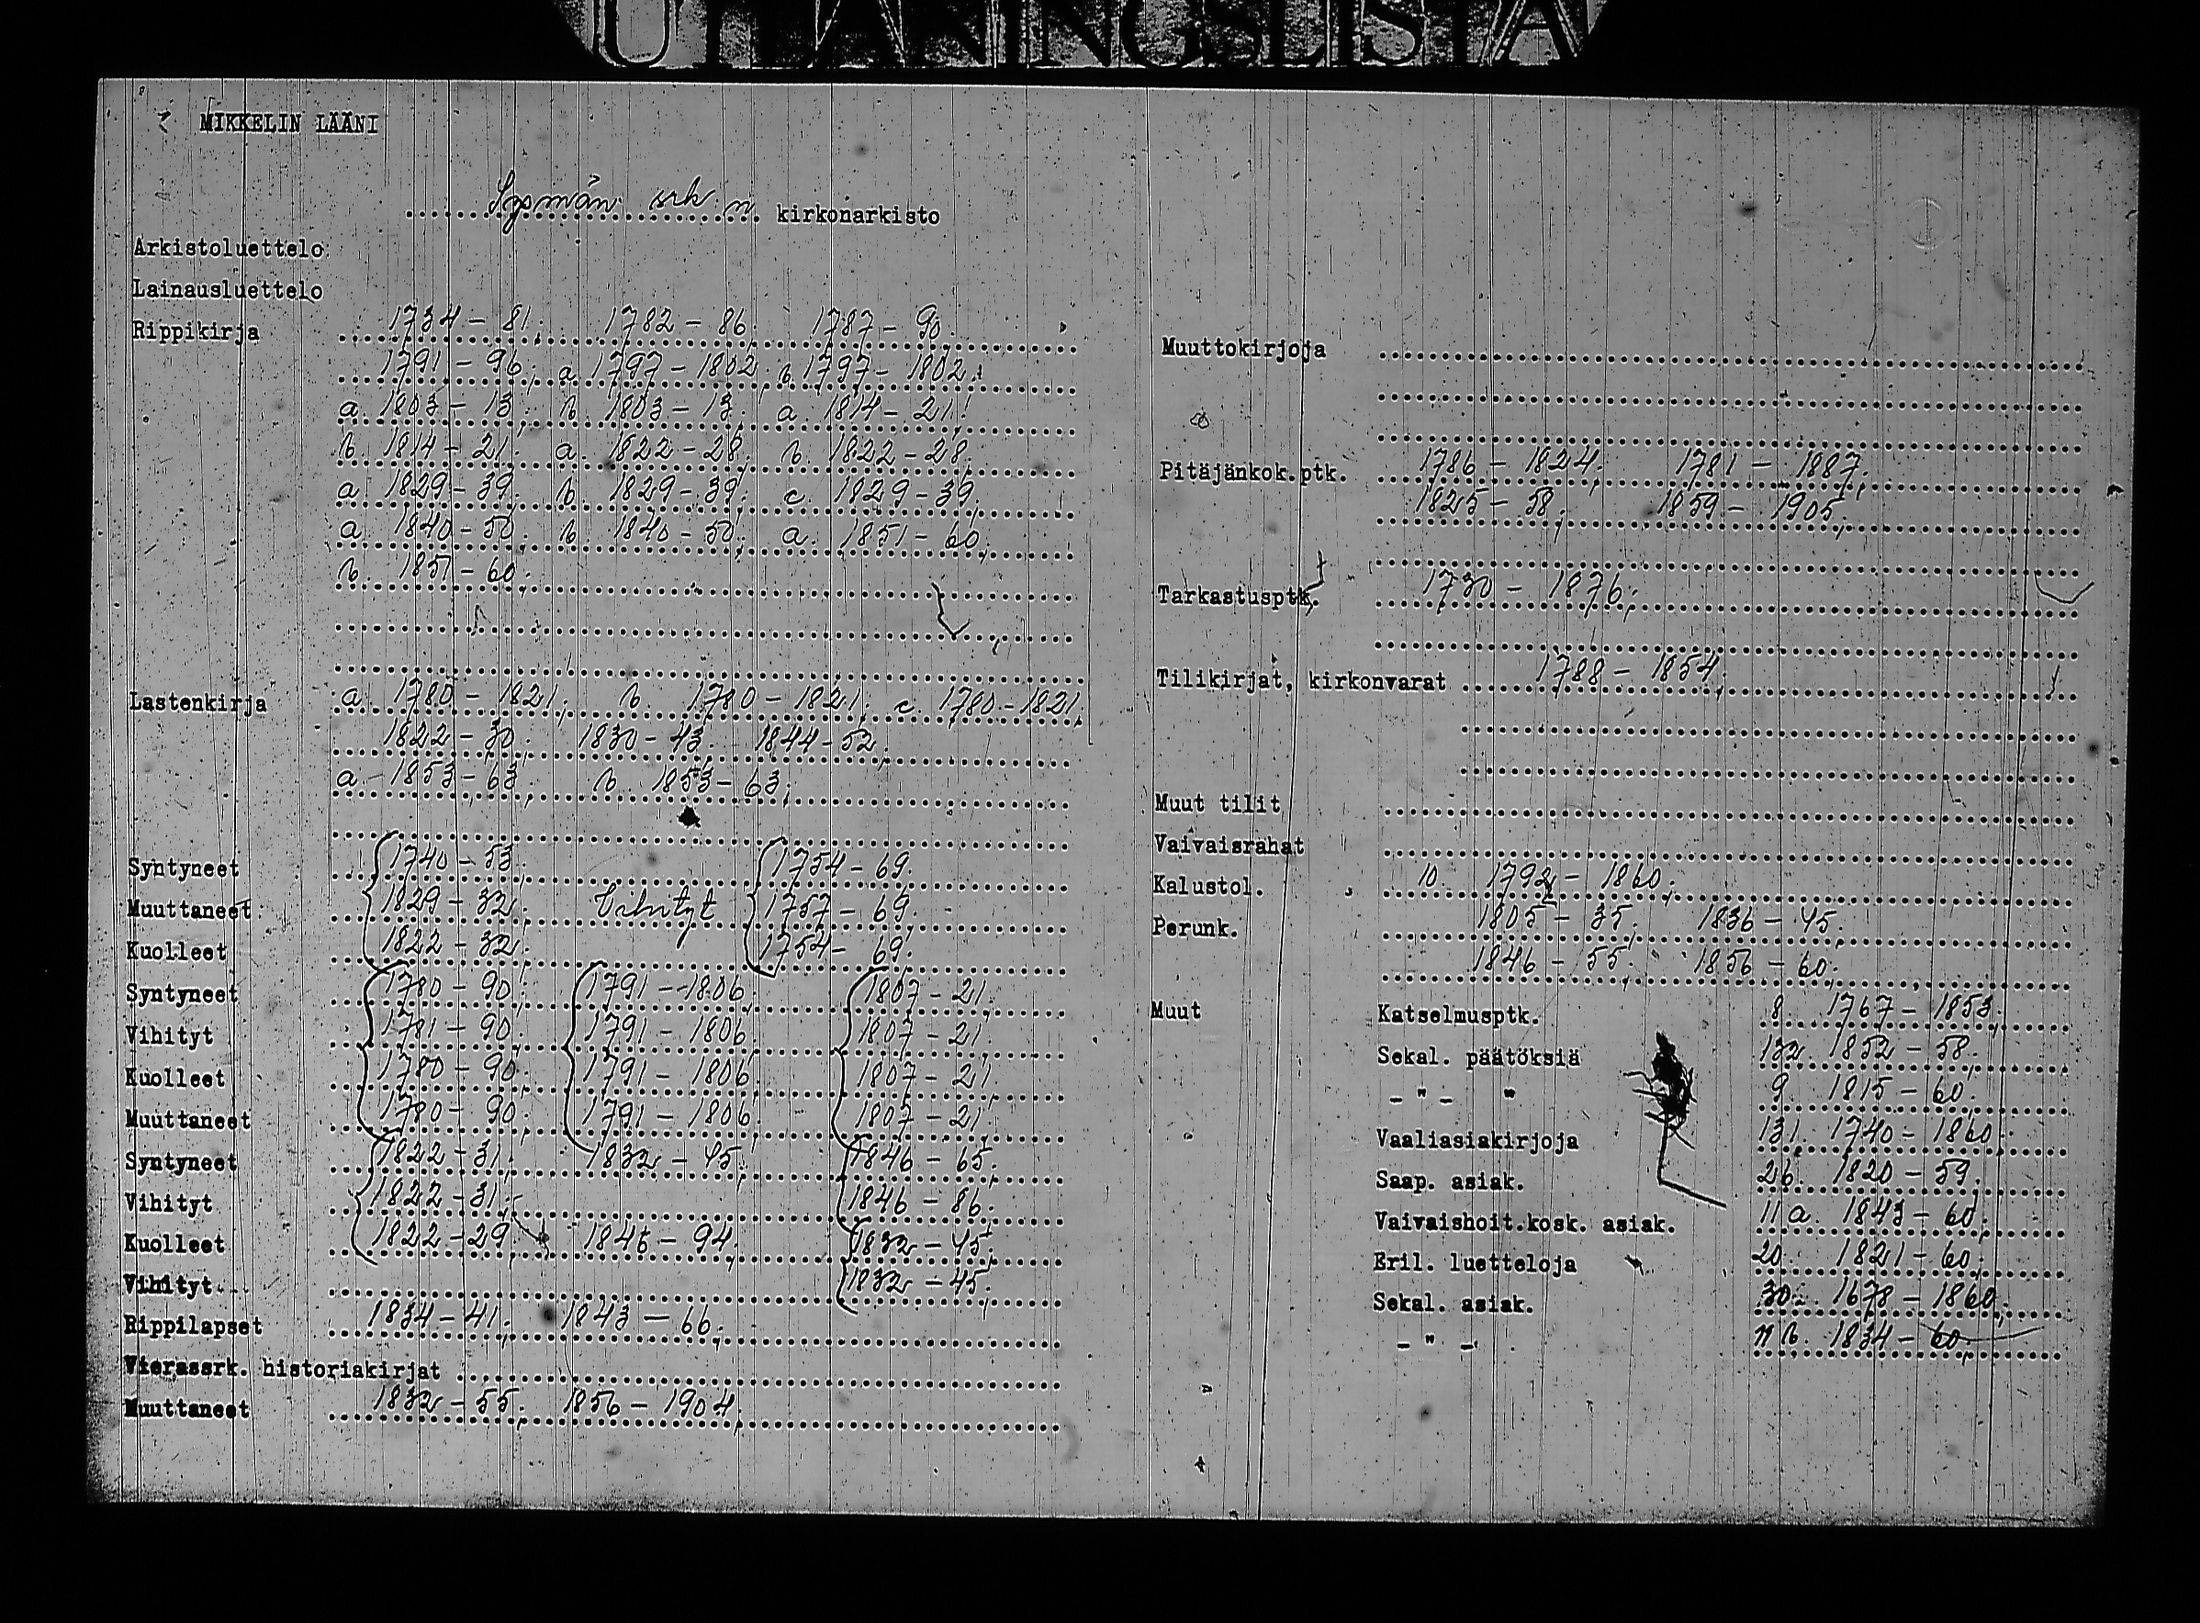 UTLÅNINGSLISTA
MIKKELIN LÄÄNI
Sysmän srk:n kirkonarkisto
Arkistoluettelo
Lainausluettelo
Rippikirja 1734 - 81; 1782 - 86; 1787 - 90;
1791 - 96; a. 1797 - 1802; b. 1797 - 1802;
a. 1803 - 13; b. 1803 - 13; a. 1814 - 21;
b. 1814 - 21; a. 1822 - 28; b. 1822 - 28;
a. 1829 - 39; b. 1829 - 39; c. 1829 - 39;
a. 1840 - 50; b. 1840 - 50; a. 1851 - 60;
b. 1851 - 60;
Lastenkirja a. 1780 - 1821; b. 1780 - 1821; c. 1780 - 1821;
1822 - 30; 1830 - 43; 1844 - 52;
a - 1853 - 63; b. 1853 - 63;
Syntyneet 1740 - 53; 1754 - 69;
Muuttaneet 1829 - 32; Vihityt 1757 - 69;
Kuolleet 1822 - 32; 1754 - 69;
Syntyneet 1780 - 90; 1791 - 1806; 1807 - 21;
Vihityt 1781 - 90; 1791 - 1806; 1807 - 21;
Kuolleet 1780 - 90; 1791 - 1806; 1807 - 21;
Muuttaneet 1780 - 90; 1791 - 1806; 1807 - 21;
Syntyneet 1822 - 31; 1832 - 45; 1846 - 65;
Vihityt 1822 - 31; 1846 - 86;
Kuolleet 1822 - 29; 1846 - 94; 1832 - 45;
Vihityt 1832 - 45;
Rippilapset 1834 - 41; 1843 - 66;
Vierassrk. historiakirjat
Muuttaneet 1832 - 55; 1856 - 1904;
Muuttokirjoja
Pitäjänkok.ptk. 1786 - 1824; 1781 - 1887;
1825 - 58; 1859 - 1905;
Tarkastusptk. 1730 - 1876;
Tilikirjat, kirkonvarat 1788 - 1854;
Muut tilit
Vaivaisrahat
Kalustol. 10. 1792 - 1860;
Perunk. 1805 - 35; 1836 - 45;
1846 - 55; 1856 - 60;
Muut Katselmusptk. 8. 1767 - 1853;
Sekal. päätöksiä 132. 1852 - 58;
- " - " 9. 1815 - 60;
Vaaliasiakirjoja 131. 1740 - 1860;
Saap. asiak. 26. 1820 - 59;
Vaivaishoit.kosk. asiak. 11 a. 1843 - 60;
Eril. luetteloja 20. 1821 - 60;
Sekal. asiak. 30. 1678 - 1860;
- " - 11 b. 1834 - 60;